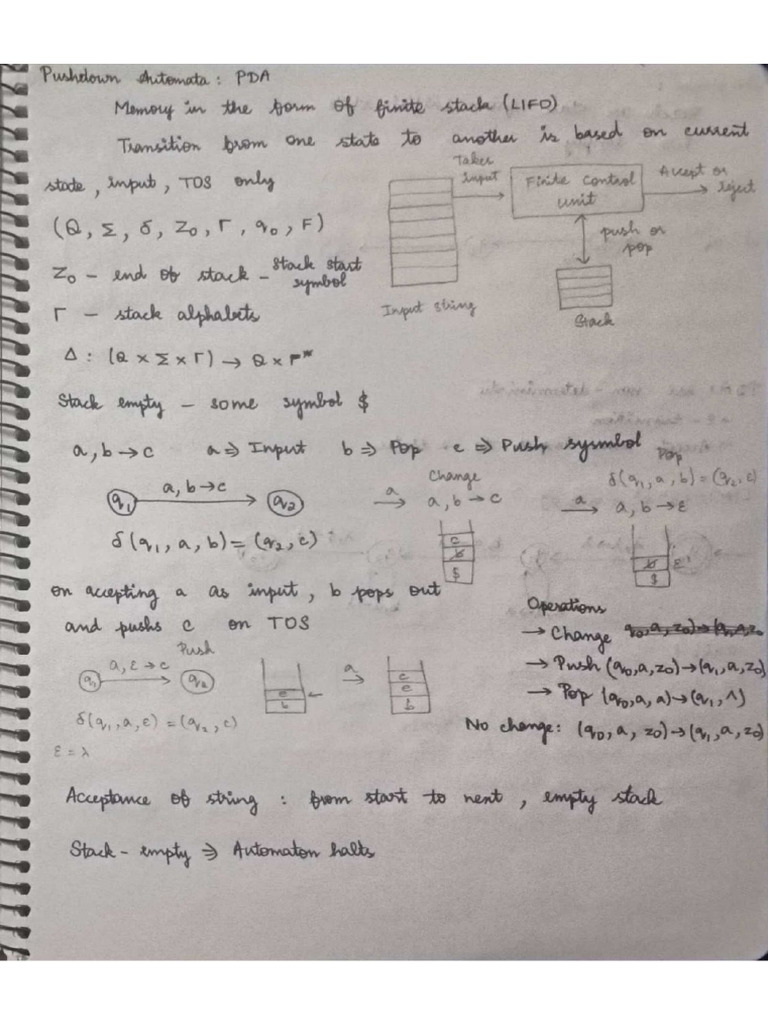 Pushdown Automata: PDA
Memory in the form of finite stack (LIFO)
Transition from one state to another is based on current
state, input, TOS only
Takes input
Finite Control unit
Accept or reject
push or pop
Input string
Stack
(Q, Σ, δ, Z₀, Γ, q₀, F)
Z₀ - end of stack - Stack start symbol
Γ - stack alphabets
Δ : (Q × Σ × Γ) → Q × Γ*
Stack empty - some symbol $
a, b → c a ⇒ Input b ⇒ Pop c ⇒ Push sysmbol
q₁ a, b → c q₂
δ(q₁, a, b) = (q₂, c)
Change
a → a, b → c
c
b
$
Pop
δ(q₁, a, b) = (q₂, ε)
a → a, b → ε
b
$
on accepting a as input, b pops out
and pushs c on TOS
Push
q₁ a, ε → c q₂
δ(q₁, a, ε) = (q₂, c)
ε = λ
e
b
←
a →
c
e
b
Operations
→ Change
→ Push (q₀, a, z₀) → (q₁, a, z₀)
→ Pop (q₀, a, a) → (q₁, ^)
No change: (q₀, a, z₀) → (q₁, a, z₀)
Acceptance of string : from start to nent, empty stack
Stack - empty ⇒ Automaton halts